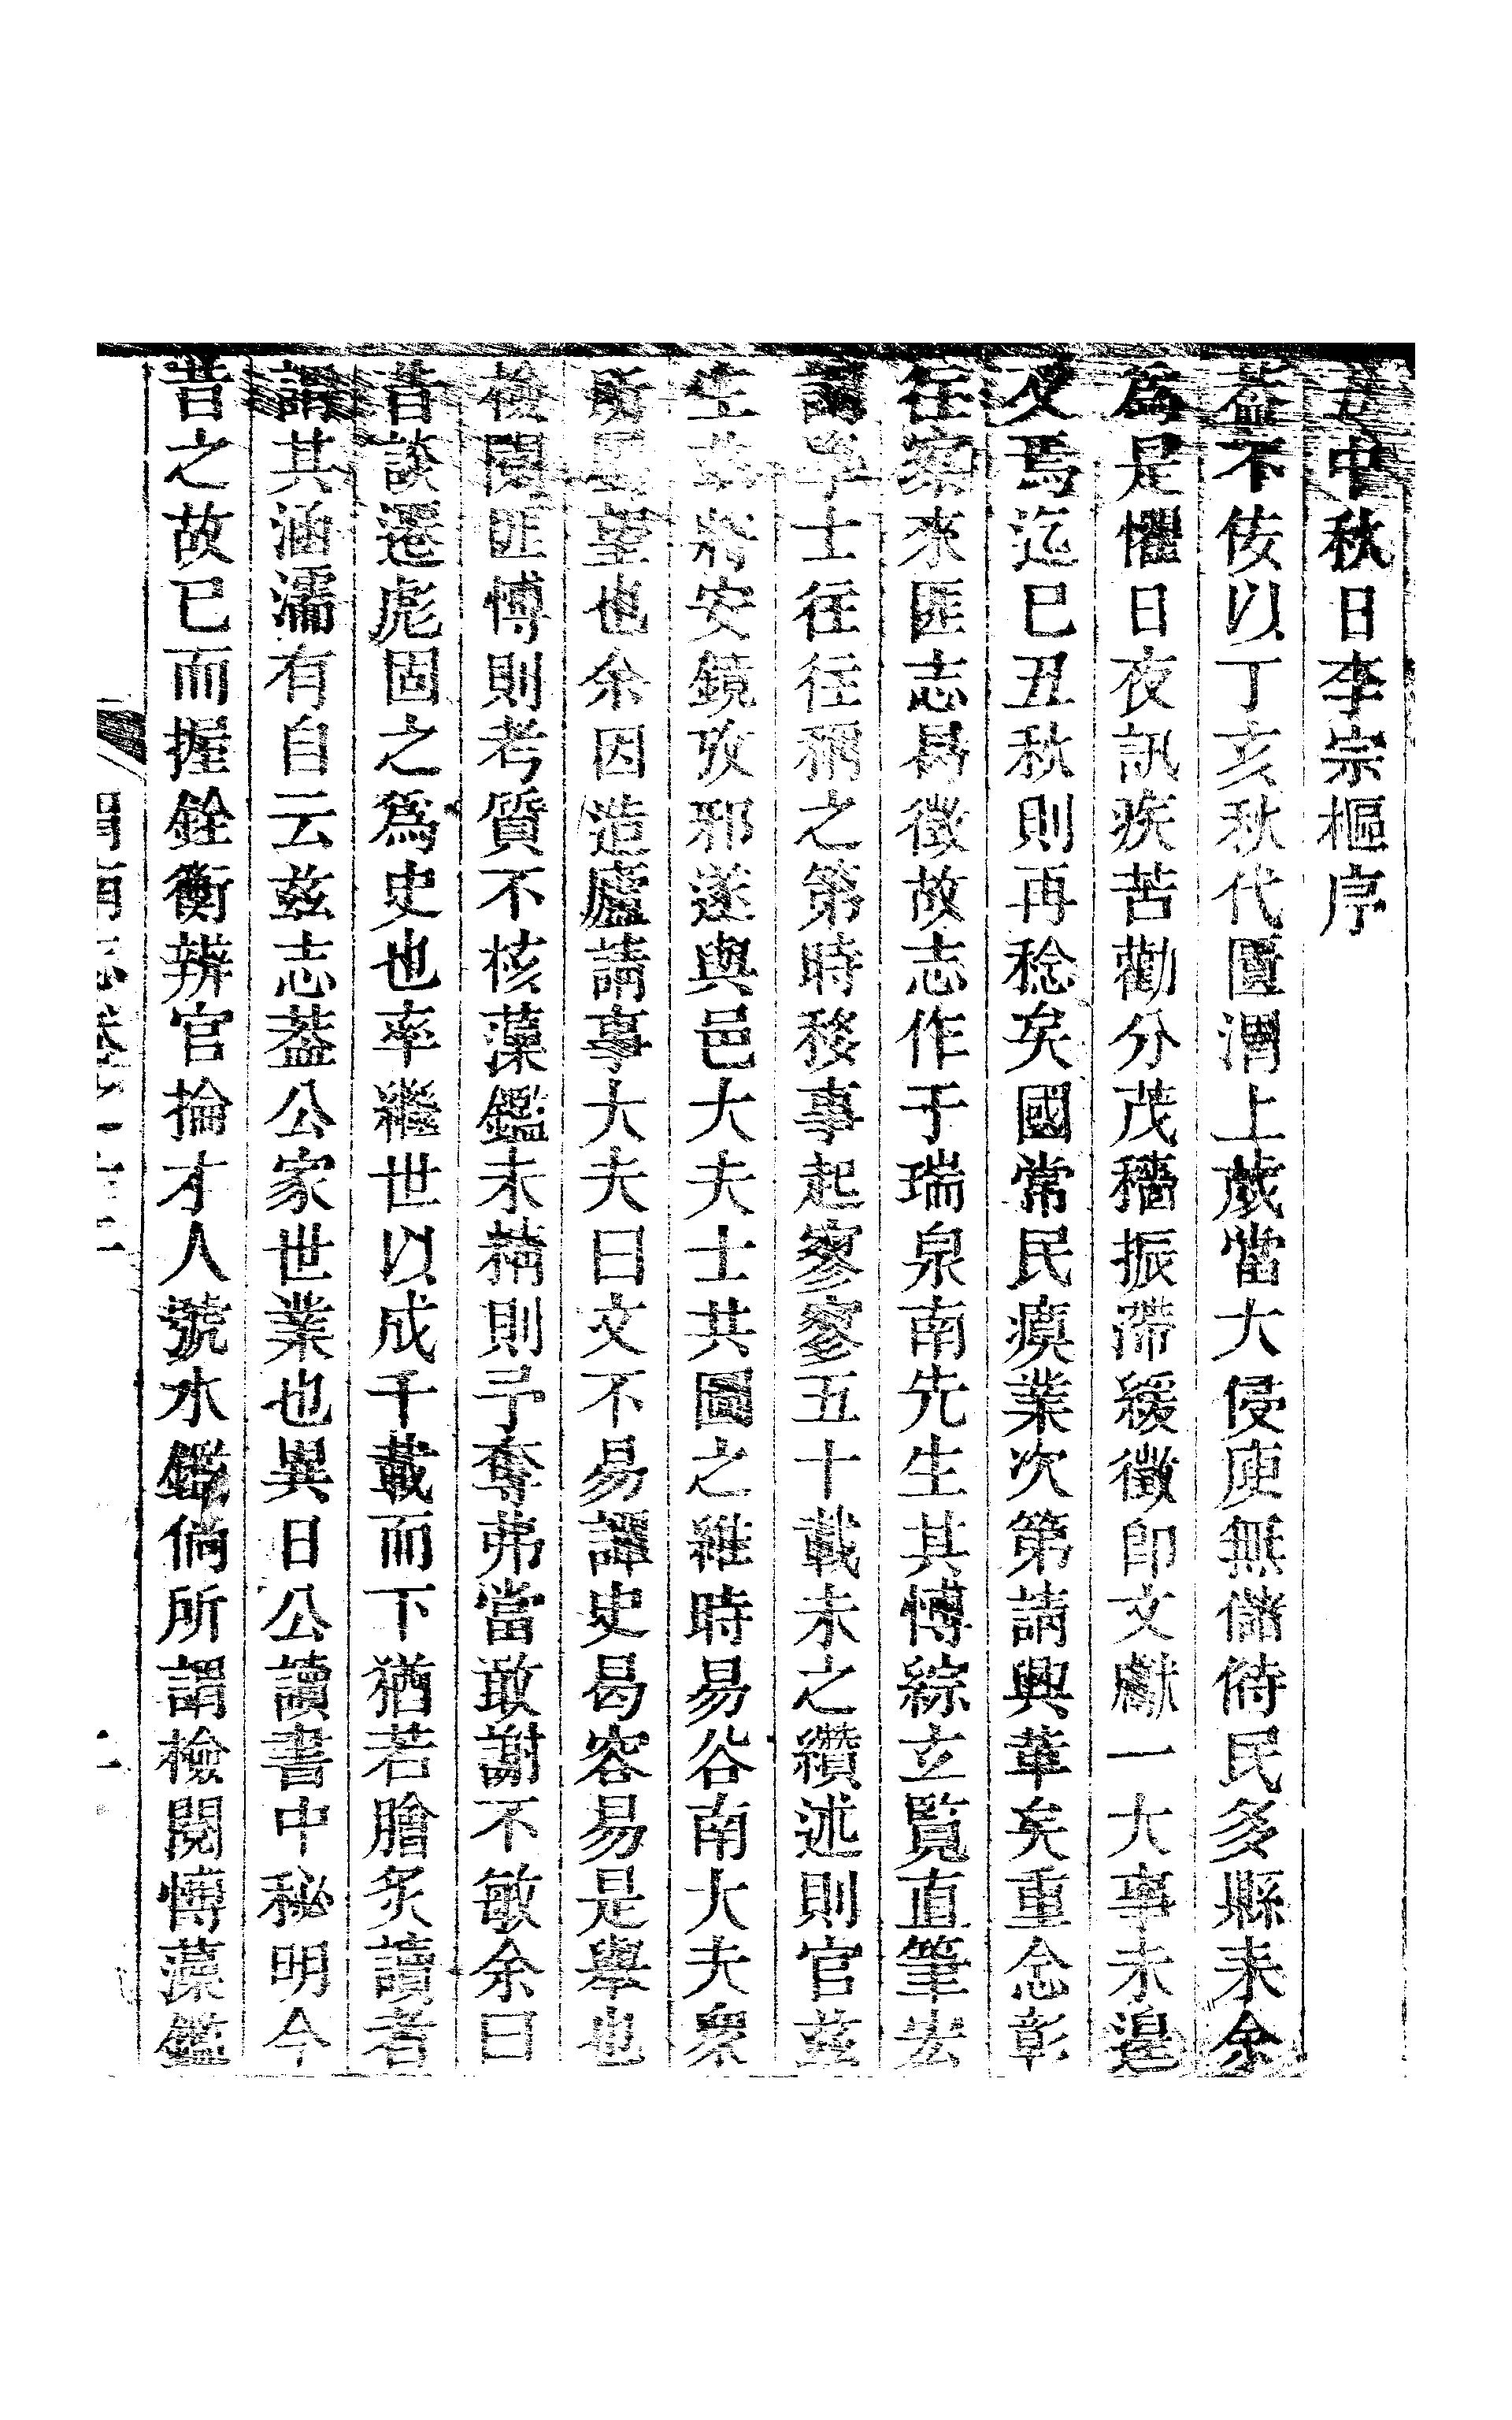 中秋日李宗樞序
葢不佞以丁亥秋代匱渭上歲當大侵庾無儲偫民多縣耒余
爲是懼日夜訊疾苦勸分茂穡振滯緩徵卽文獻一大事未遑
及焉迄巳丑秋則再稔矣國常民瘼業次第請興華矣重念彰
往察來匪志曷徵故志作于瑞泉南先生其慱綜玄覧直筆宏
詞學士往往稱之第時移事起寥寥五十載未之纘述則官茲
生者將安鏡攷邪遂與邑大夫士共圖之維時易谷南大夫衆
所望也余因造廬請事大夫曰文不易譚史曷容易是舉也
檢閱匪慱則考質不核藻鑑未精則予奪弗當敢謝不敏余曰
昔談遷彪固之爲史也率繼世以成千載而下猶若膾炙讀者
謂其涵濡有自云兹志葢公家世業也異日公讀書中秘明今
昔之故已而握銓衡辨官掄才人號水鑑倘所謂檢閱慱藻鑑
渭南志卷十二